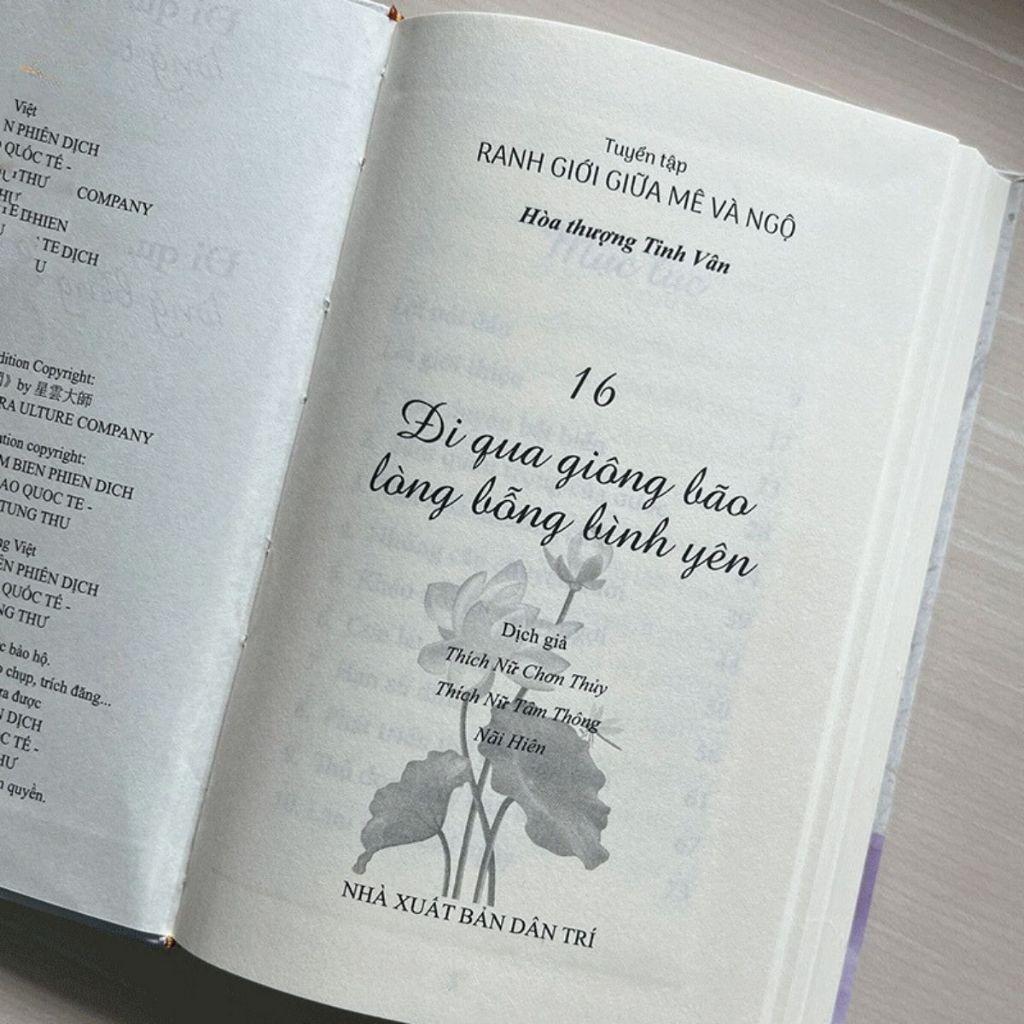 Việt
N PHIÊN DỊCH
QUỐC TẾ -
THƯ COMPANY
TE DỊCH
U
dition Copyright:
by 星雲大師
RA ULTURE COMPANY
tion copyright:
M BIEN PHIEN DICH
AO QUOC TE -
TUNG THU
ng Việt
ÊN PHIÊN DỊCH
QUỐC TẾ -
NG THƯ
c bảo hộ.
chụp, trích đăng...
ra được
N DỊCH
C TẾ -
HƯ
n quyền.
Tuyển tập
RANH GIỚI GIỮA MÊ VÀ NGỘ
Hòa thượng Tinh Vân
16
Đi qua giông bão
lòng bỗng bình yên
Dịch giả
Thích Nữ Chơn Thủy
Thích Nữ Tâm Thông
Nãi Hiên
NHÀ XUẤT BẢN DÂN TRÍ